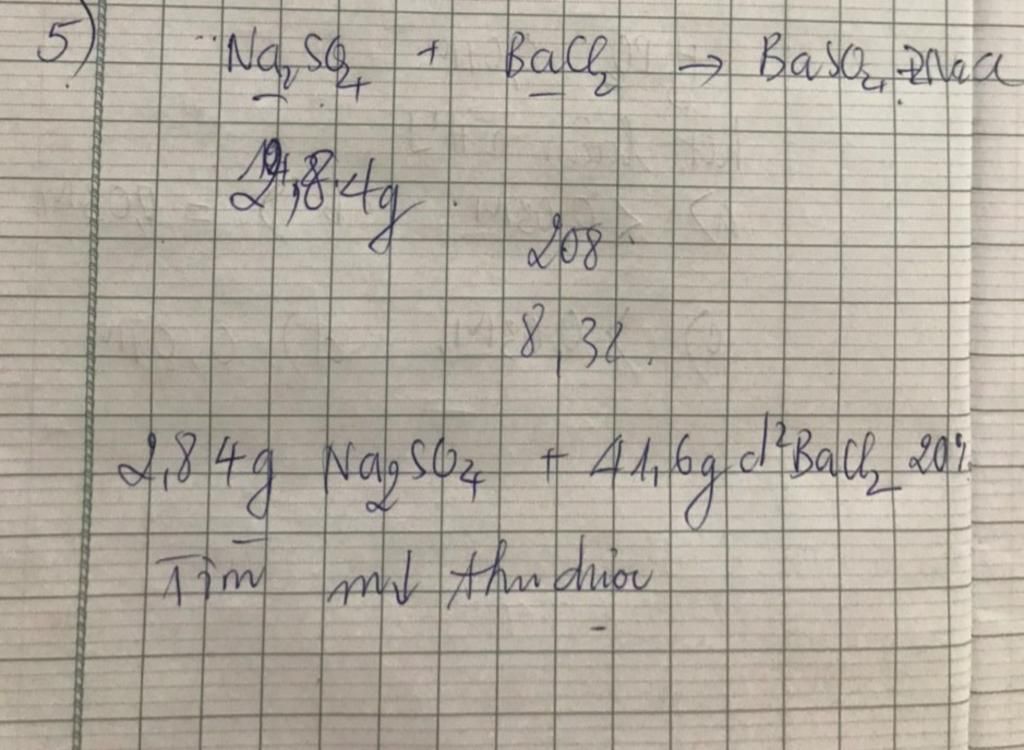 5) Na₂SO₄ + BaCl₂ → BaSO₄ + 2NaCl
2,84g
208
8,32
2,84g Na₂SO₄ + 41,6g d² BaCl₂ 20%
Tìm m↓ thu được